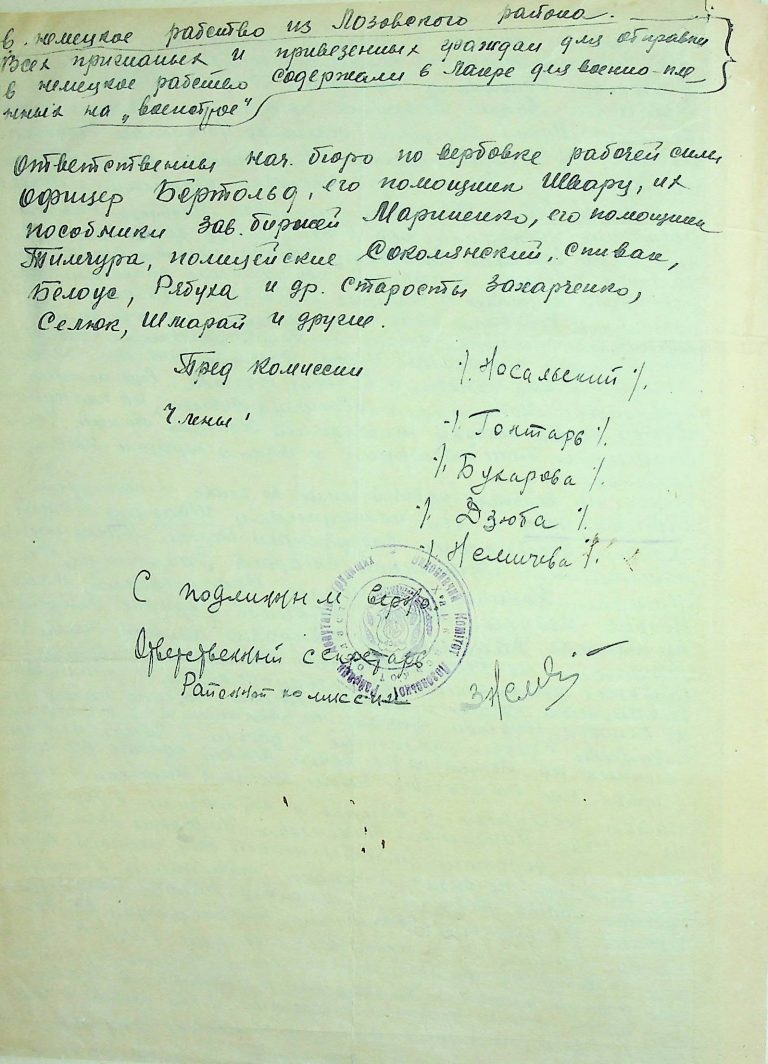 в немецкое рабство из Лозовского района.
Всех пригнаных и привезенных граждан для отправки
в немецкое рабство содержали в лагере для военно-пле
нных на „
Ответственны нач. бюро по вербовке рабочей силы
Офицер Бертольд, его помощник Шварц, их
пособники зав. биржей Мариненко, его помощник
Тимчура, полицейские Соколянский, Спивак,
Белоус, Рябуха и др. Старосты Захарченко,
Селюк, Шмарай и другие.
Пред комиссии ·/. Носальский ·/.
Члены: ·/. Гонтарь ·/.
·/. Букарова ·/.
·/. Дзюба ·/.
·/. Немичева ·/.
С подлинным верно:
Ответственный секретарь
Районной комиссии